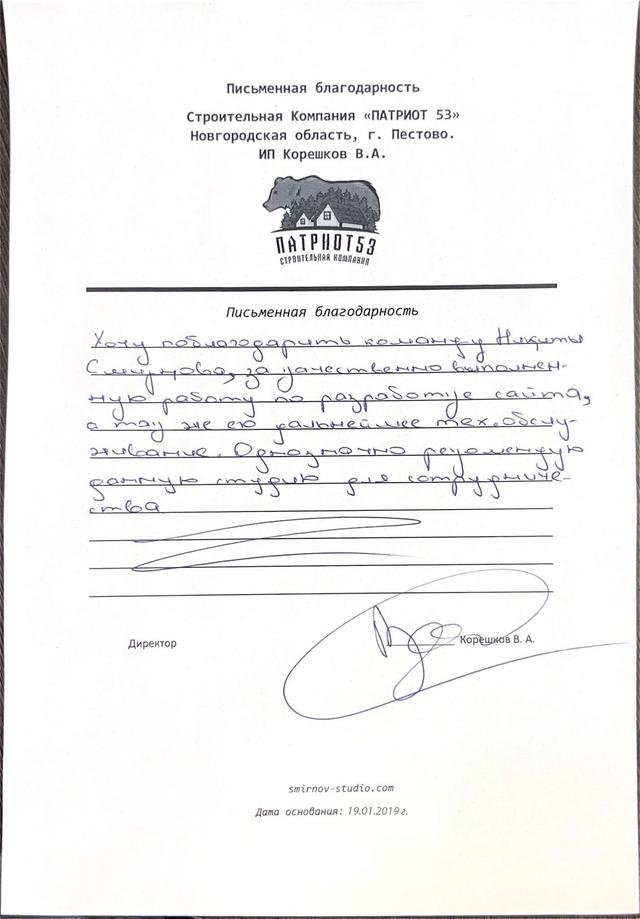 Письменная благодарность
Строительная Компания «ПАТРИОТ 53»
Новгородская область, г. Пестово.
ИП Корешков В.А.
ПАТРИОТ53
СТРОИТЕЛЬНАЯ КОМПАНИЯ
Письменная благодарность
Хочу поблагодарить команду Никиты
Смирнова, за качественно выполнен-
ную работу по разработке сайта,
а так же его дальнейшее тех.обслу-
живание. Однозначно рекомендую
данную студию для сотрудниче-
ства
Директор
Корешков В. А.
smirnov-studio.com
Дата основания: 19.01.2019 г.